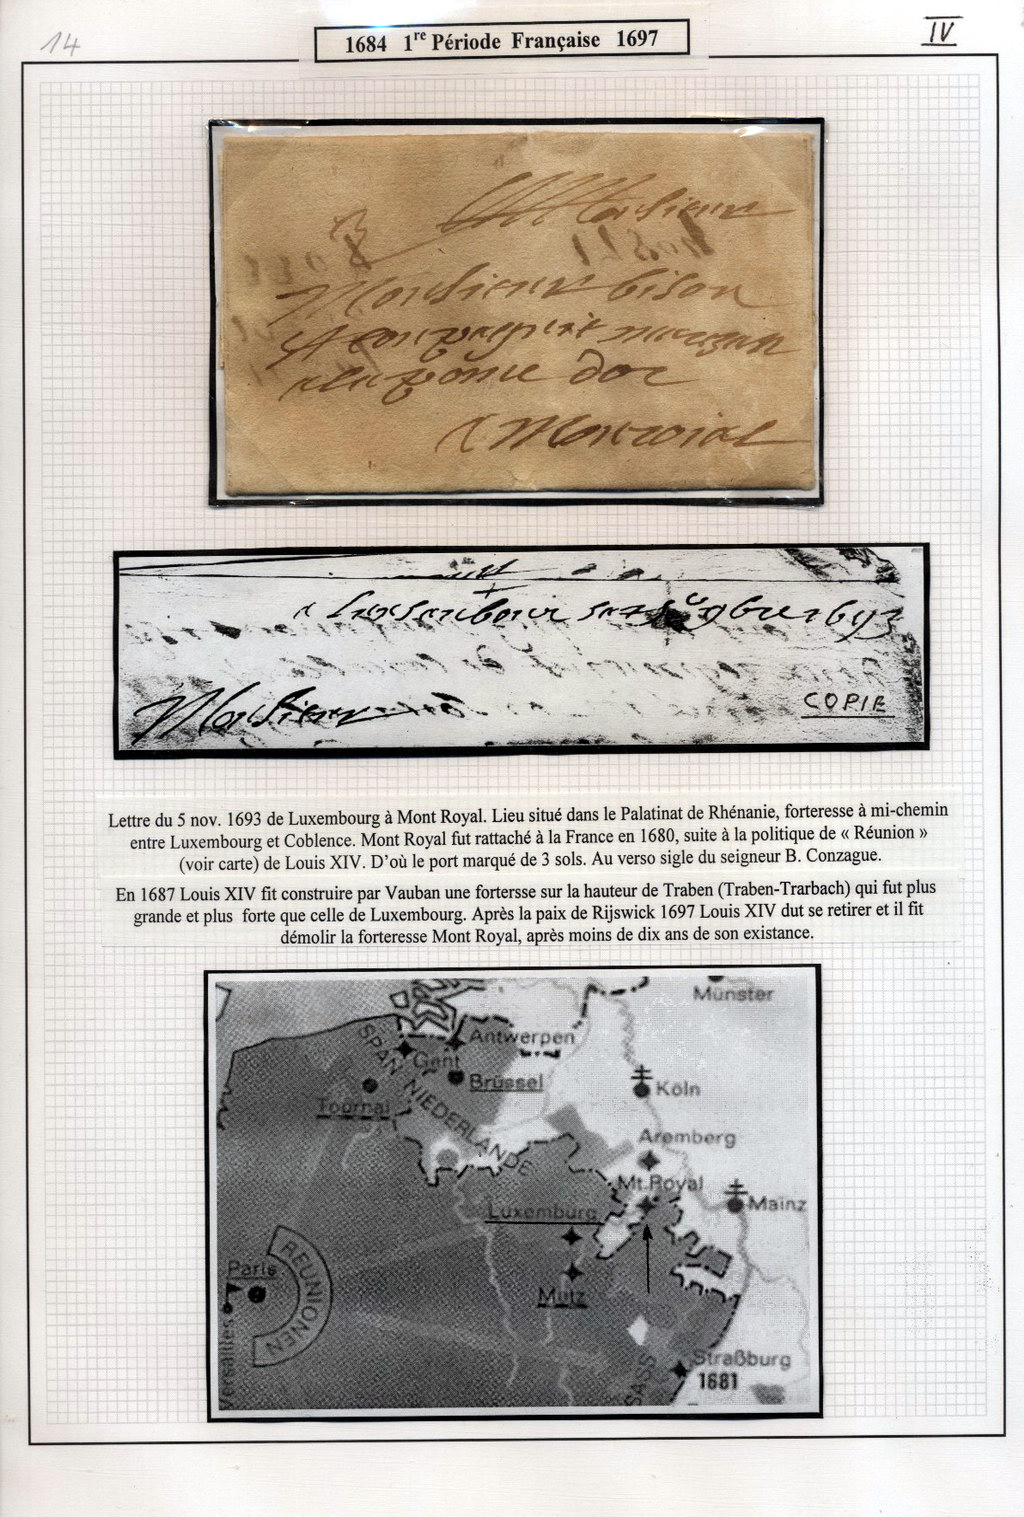 14
1684 1re Période Française 1697
IV
Monsieur
Monsieur bison
doe
A Monroial
a Luxembour 1693
Monsieur
COPIE
Lettre du 5 nov. 1693 de Luxembourg à Mont Royal. Lieu situé dans le Palatinat de Rhénanie, forteresse à mi-chemin
entre Luxembourg et Coblence. Mont Royal fut rattaché à la France en 1680, suite à la politique de « Réunion »
(voir carte) de Louis XIV. D'où le port marqué de 3 sols. Au verso sigle du seigneur B. Conzague.
En 1687 Louis XIV fit construire par Vauban une fortersse sur la hauteur de Traben (Traben-Trarbach) qui fut plus
grande et plus forte que celle de Luxembourg. Après la paix de Rijswick 1697 Louis XIV dut se retirer et il fit
démolir la forteresse Mont Royal, après moins de dix ans de son existance.
Münster
Antwerpen
Gent
SPAN NIEDERLANDE
Brüssel
Köln
Tournai
Aremberg
Mt.Royal
Mainz
Luxemburg
REUNIONEN
Paris
Metz
Versailles
Straßburg
1681
SASS